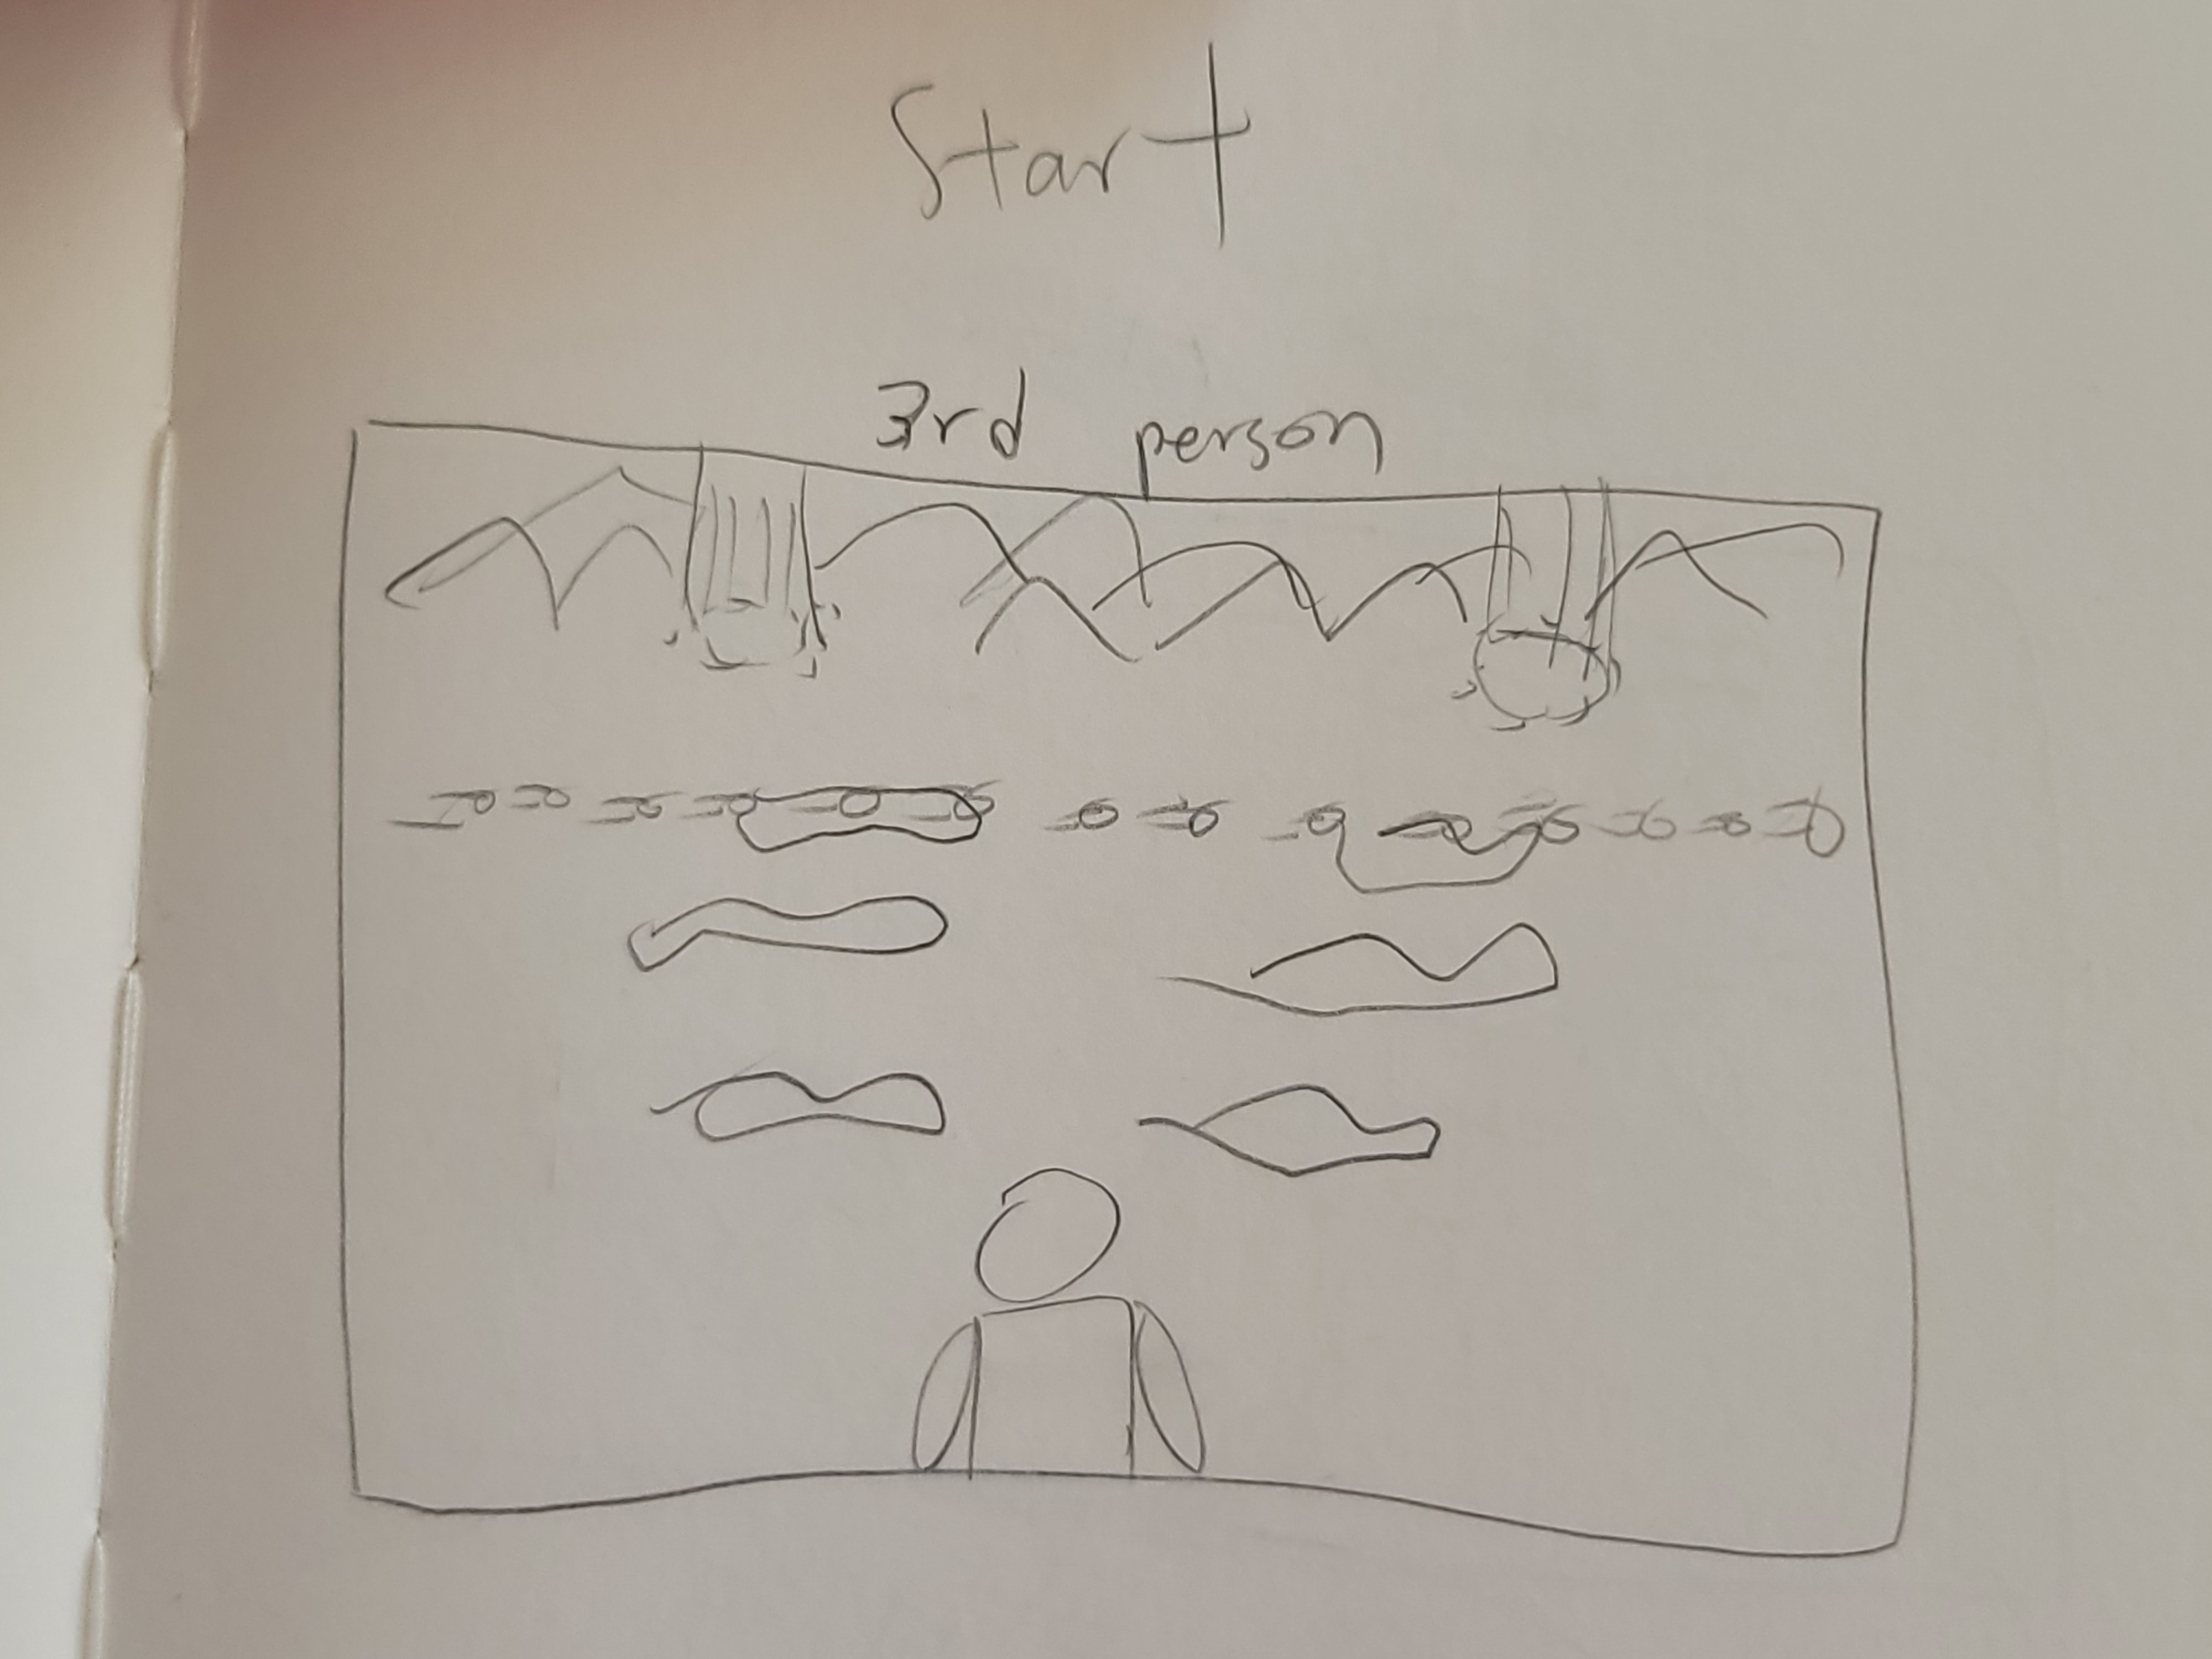 Start
3rd person